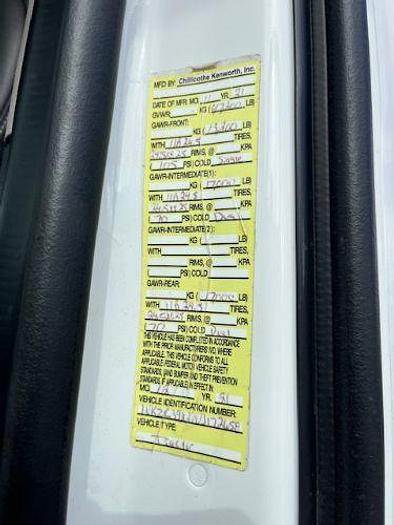 MFD BY: Chillicothe Kenworth, Inc.
DATE OF MFR: MO. 11 YR. 91
GVWR: KG ( LB)
GAWR-FRONT:
KG ( LB)
WITH 11R24.5 TIRES,
RIMS, @ KPA
( 105 PSI) COLD Single
GAWR-INTERMEDIATE(1):
KG ( 17000 LB)
WITH 11R24.5 TIRES,
RIMS, @ KPA
( 70 PSI) COLD Dual
GAWR-INTERMEDIATE(2):
KG ( LB)
WITH TIRES,
RIMS, @ KPA
( PSI) COLD
GAWR-REAR:
KG ( 17000 LB)
WITH 11R24.5 TIRES,
RIMS, @ KPA
( 70 PSI) COLD Dual
THIS VEHICLE HAS BEEN COMPLETED IN ACCORDANCE
WITH THE PRIOR MANUFACTURERS' IVD, WHERE
APPLICABLE. THIS VEHICLE CONFORMS TO ALL
APPLICABLE FEDERAL MOTOR VEHICLE SAFETY
STANDARDS, [AND BUMPER AND THEFT PREVENTION
STANDARDS, IF APPLICABLE] IN EFFECT IN
MO. YR. 91
VEHICLE IDENTIFICATION NUMBER:
VEHICLE TYPE: